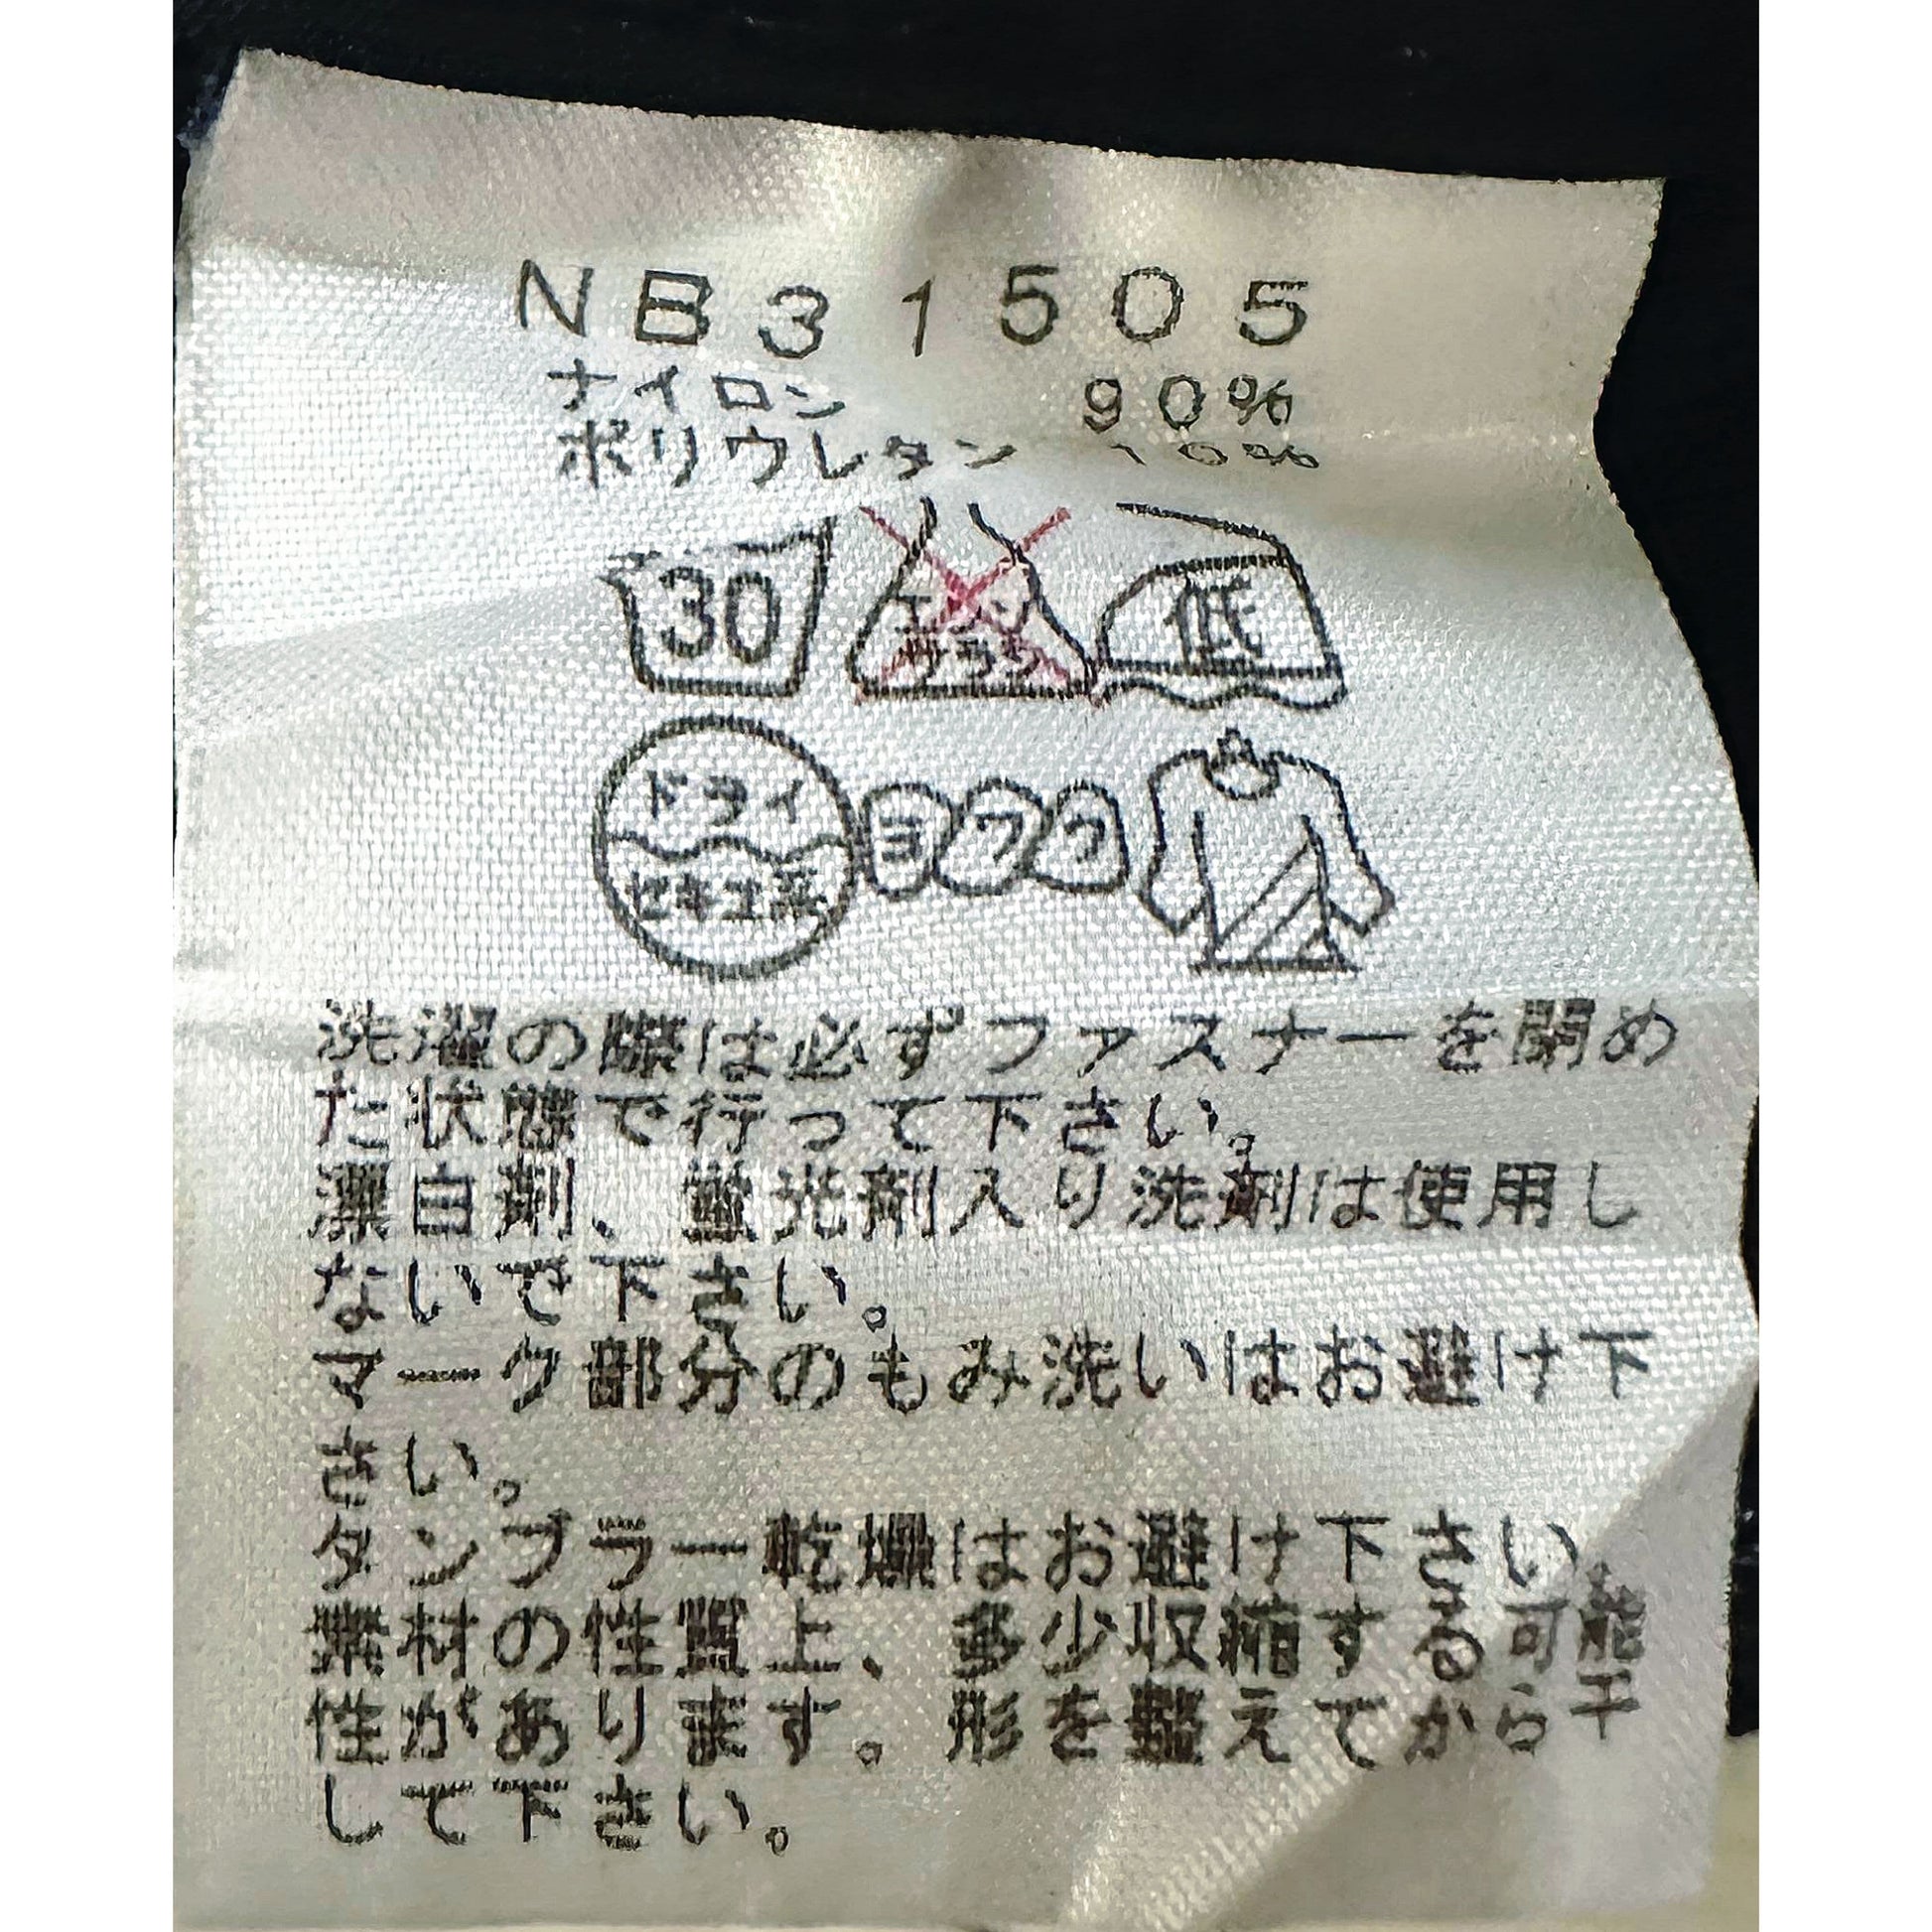 NB31505
ナイロン 90%
ポリウレタン 10%
30 エンソサラシ 低
ドライ セキユ系 ヨワク
洗濯の際は必ずファスナーを閉め
た状態で行って下さい。
漂白剤、蛍光剤入り洗剤は使用し
ないで下さい。
マーク部分のもみ洗いはお避け下
さい。
タンブラー乾燥はお避け下さい。
素材の性質上、多少収縮する可能
性があります。形を整えてから干
して下さい。